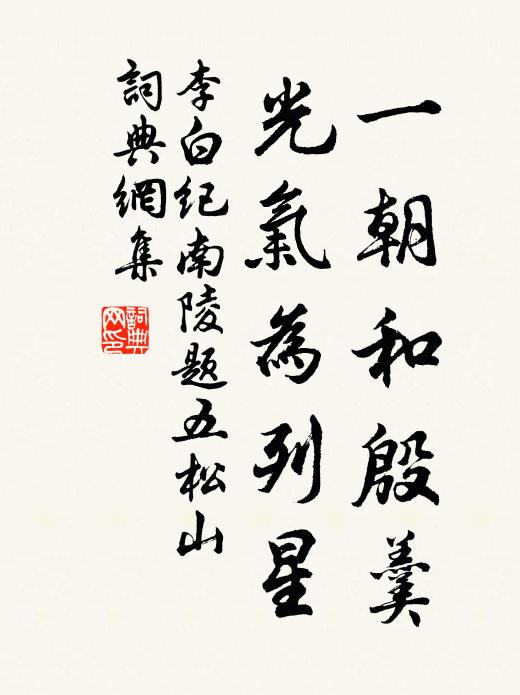 一朝和殷羹
光氣為列星
李白纪南陵題五松山
詞典網集
詞典网印